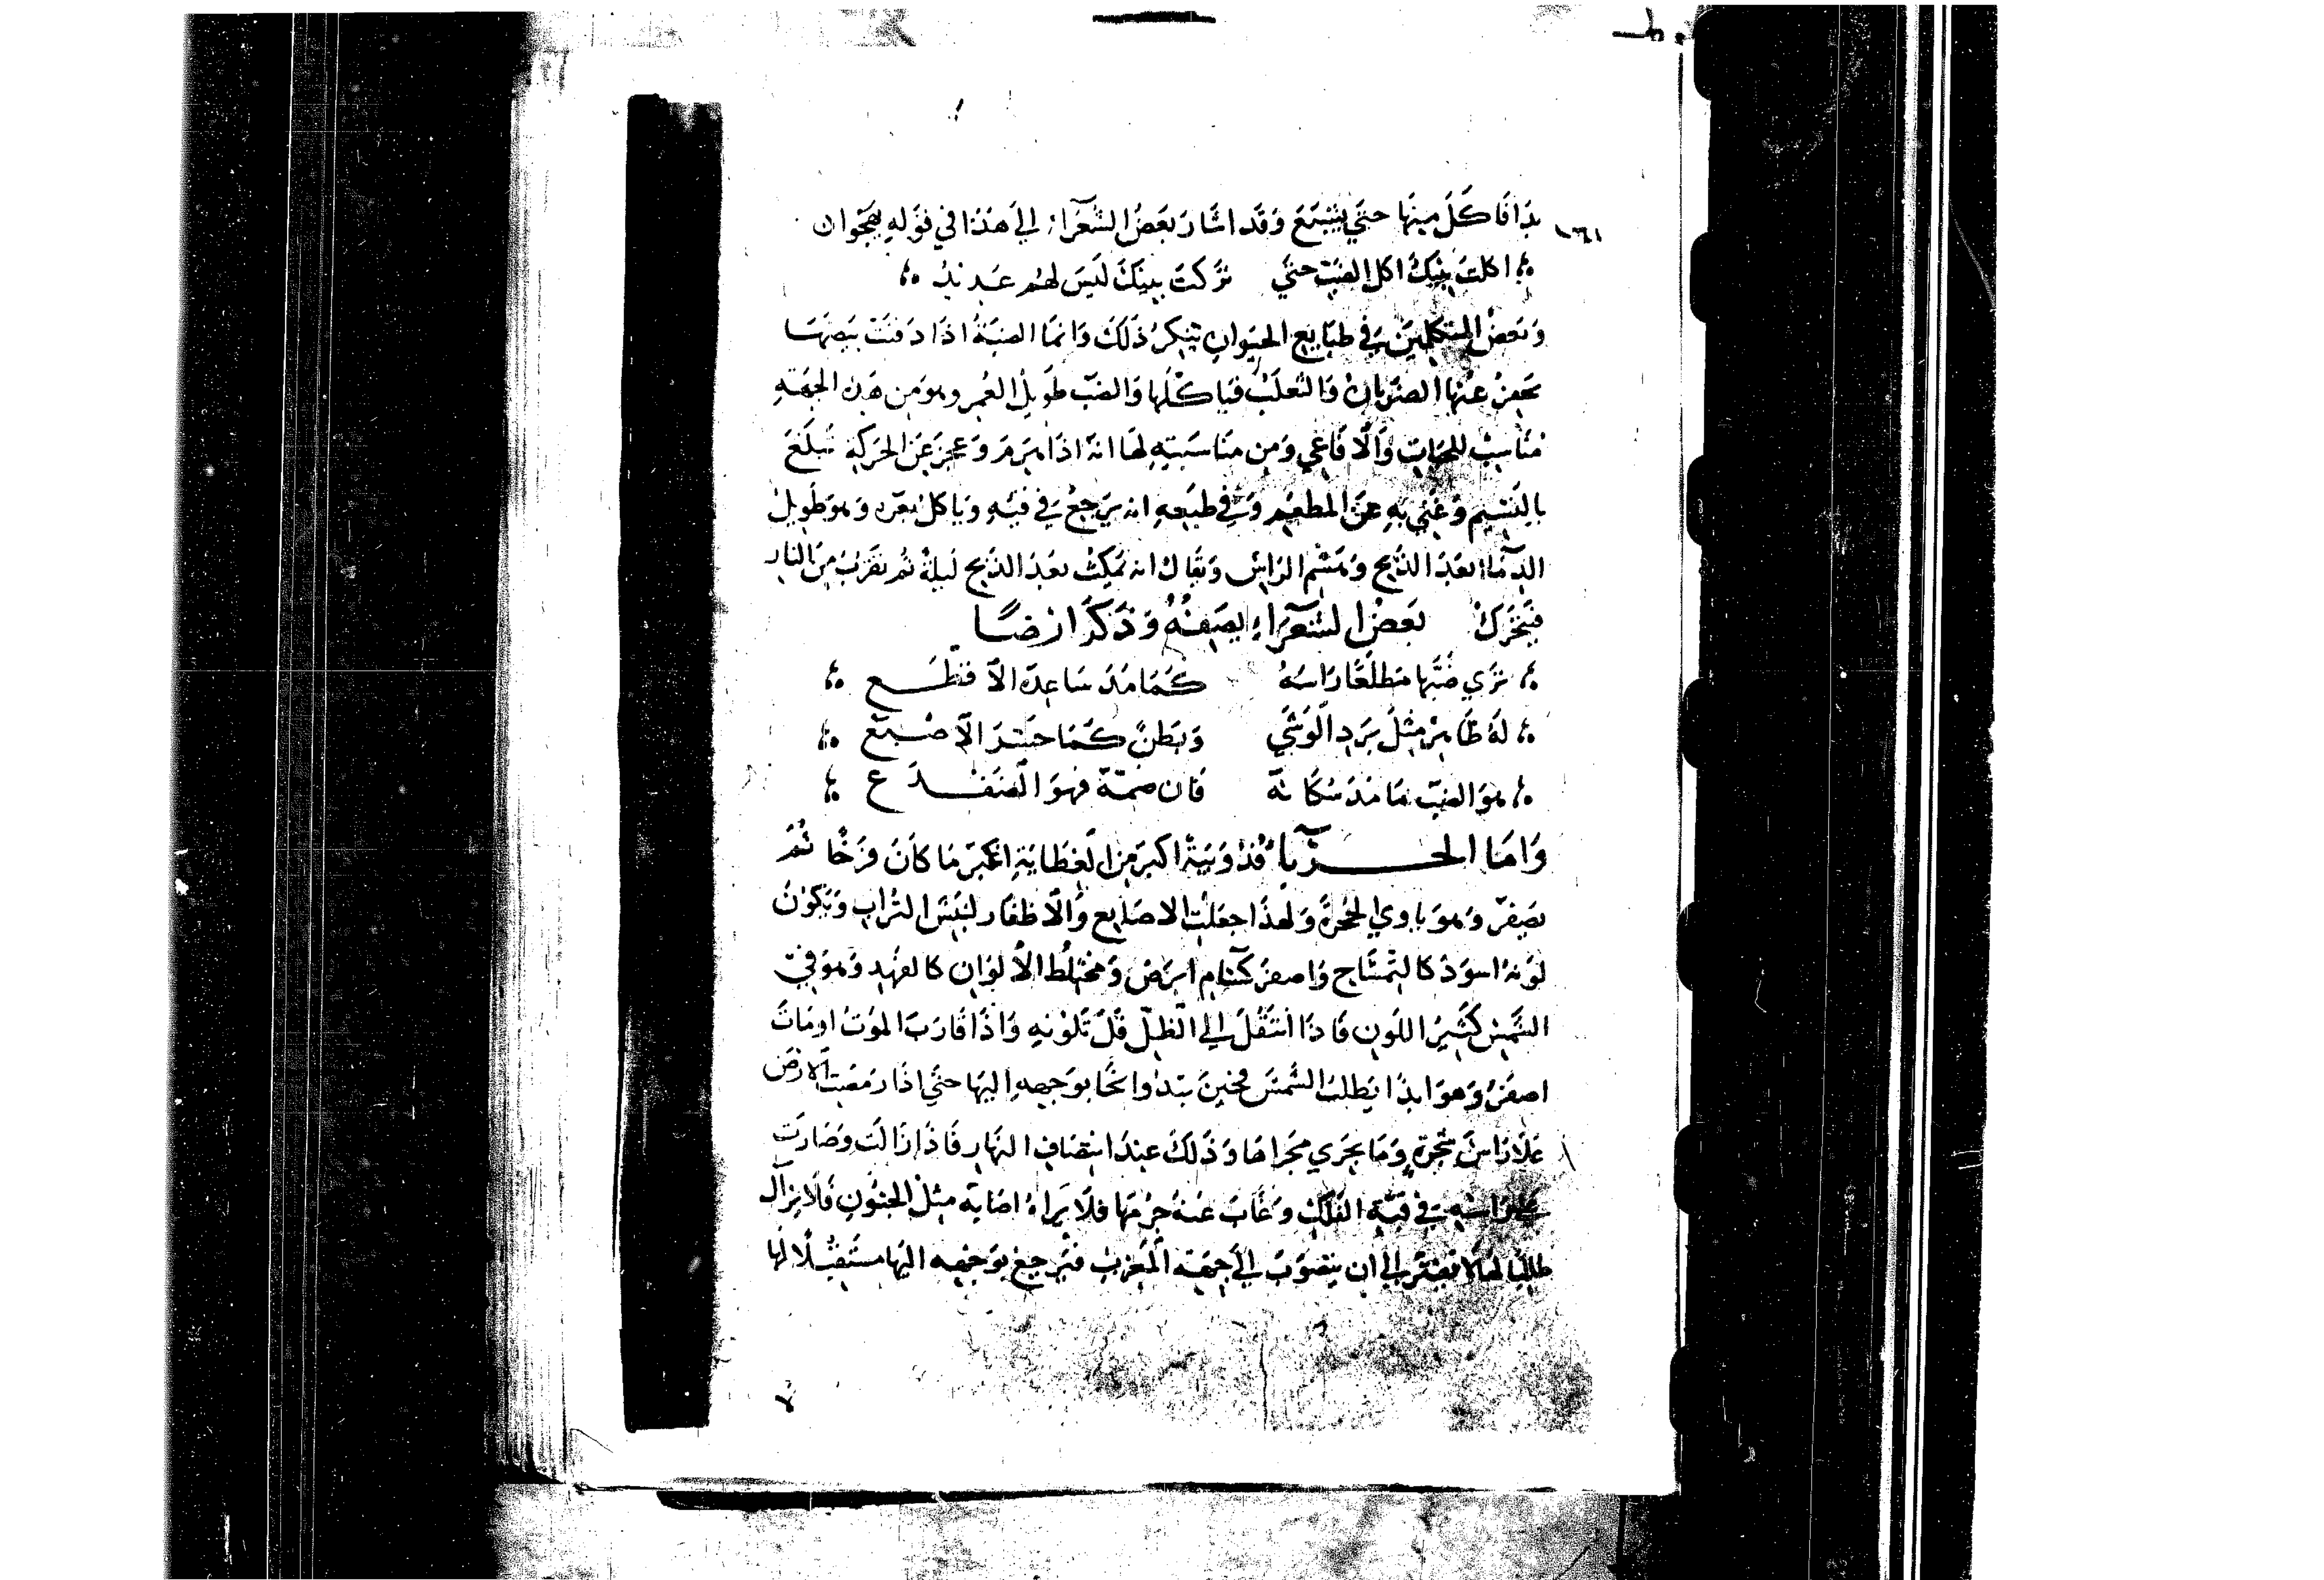 ١٦١
بدا فاكل منها حتي يشبع وقد اشار بعض الشعراء الي هذا في قوله يهجوان
اكلت بنيك اكل الضب حتي تركت بنيك ليس لهم عديد
وبعض المتكلمين في طبايع الحيوان ينكر ذلك وانما الضبة اذا دفنت بيضها
يحفر عنها الضربان والثعلب فياكلها والضب طويل العمر وهو من هذه الجهة
مناسب للحيات والافاعي ومن مناسبته لها انه اذا هرم وعجز عن الحركة تبلغ
بالنسيم وغني به عن المطعم وفي طبعه انه يرجع في قيئه وياكل بعره وهو طويل
الدما بعد الذبح وهشم الراس ويقال انه يمكث بعد الذبح ليلة ثم يقرب من النار
فيتحرك بعض الشعراء يصفه وذكر ارضا
تري ضبها مطلعا راسه كما مد ساعده الاقطع
له ظاهر مثل برد الوشي وبطن كما حسر الاصلع
هو الضب ما مد سكانه فان ضمه فهو الضفدع
واما الحربا فدويبة اكبر من العظاية اغبر ما كان فرخا ثم
يصفر وهو ياوي الجحرة ولهذا جعلت الاصابع والاظفار لنبش التراب ويكون
لونه اسود كالتمساح واصفر كسام ابرص ومختلط الالوان كالفهد وهو في
الشمس كثير اللون فاذا انتقل الي الظل قل تلونه واذا قارب الموت او مات
اصفر وهو ابدا يطلب الشمس فحين تبدوا نحا بوجهه اليها حتي اذا رمضت الارض
علا راس شجرة وما يجري مجراها وذلك عند انتصاف النهار فاذا زالت وصارت
علي راسه في قبة الفلك وغاب عنه جرمها فلا يراه اصابه مثل الجنون فلا يزال
طالبا لها لا يفتر الي ان يتصوب الي جهة المغرب فيرجع بوجهه اليها مستقبلا لها